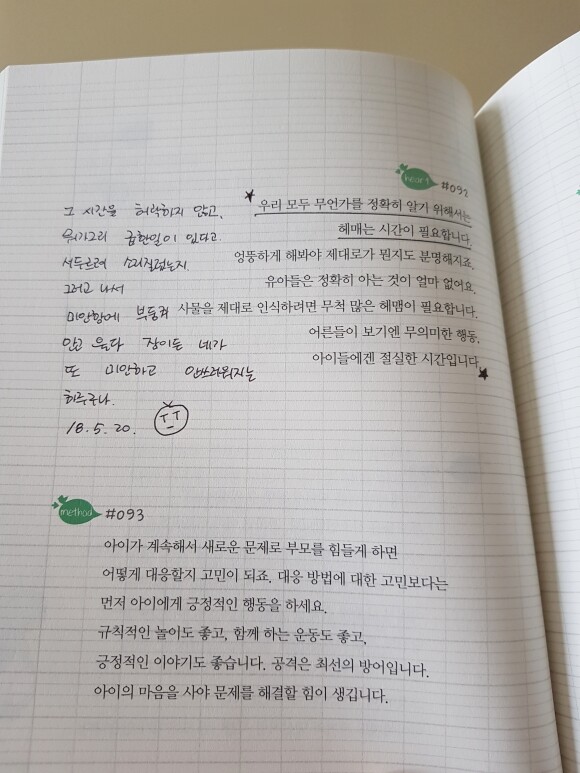 heart #092
우리 모두 무언가를 정확히 알기 위해서는
헤매는 시간이 필요합니다.
엉뚱하게 해봐야 제대로가 뭔지도 분명해지죠.
유아들은 정확히 아는 것이 얼마 없어요.
사물을 제대로 인식하려면 무척 많은 헤맴이 필요합니다.
어른들이 보기엔 무의미한 행동,
아이들에겐 절실한 시간입니다.
그 시간을 허락하지 않고,
뭐가그리 급한일이 있다고
서두르려 소리질렀는지.
그러고 나서
미안함에 부둥켜
안고 울다 잠이든 네가
또 미안하고 안쓰러워지는
하루구나.
18. 5. 20.
method #093
아이가 계속해서 새로운 문제로 부모를 힘들게 하면
어떻게 대응할지 고민이 되죠. 대응 방법에 대한 고민보다는
먼저 아이에게 긍정적인 행동을 하세요.
규칙적인 놀이도 좋고, 함께 하는 운동도 좋고,
긍정적인 이야기도 좋습니다. 공격은 최선의 방어입니다.
아이의 마음을 사야 문제를 해결할 힘이 생깁니다.